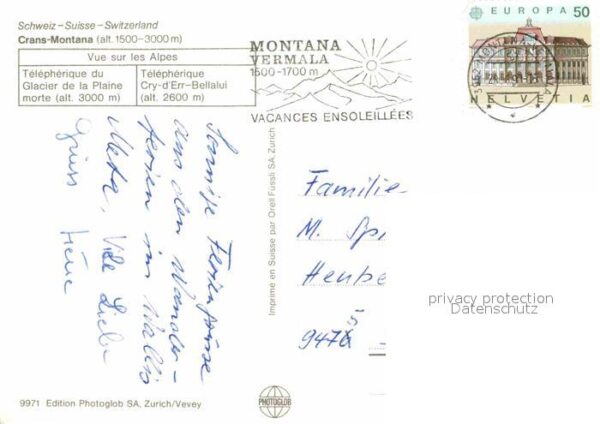 Schweiz – Suisse – Switzerland
Crans-Montana (alt. 1500–3000 m)
Vue sur les Alpes
Téléphérique du
Glacier de la Plaine
morte (alt. 3000 m)
Téléphérique
Cry-d'Err–Bellalui
(alt. 2600 m)
MONTANA
VERMALA
1500-1700 m
VACANCES ENSOLEILLÉES
EUROPA 50
HELVETIA
Sonnige Feriengrüsse
aus den Wander-
ferien im Wallis
Viele Liebe
Grüss
Imprimé en Suisse par Orell Füssli SA, Zurich
Familie
M. Sp
Heube
947 5
privacy protection
Datenschutz
9971 Edition Photoglob SA, Zurich/Vevey
PHOTOGLOB